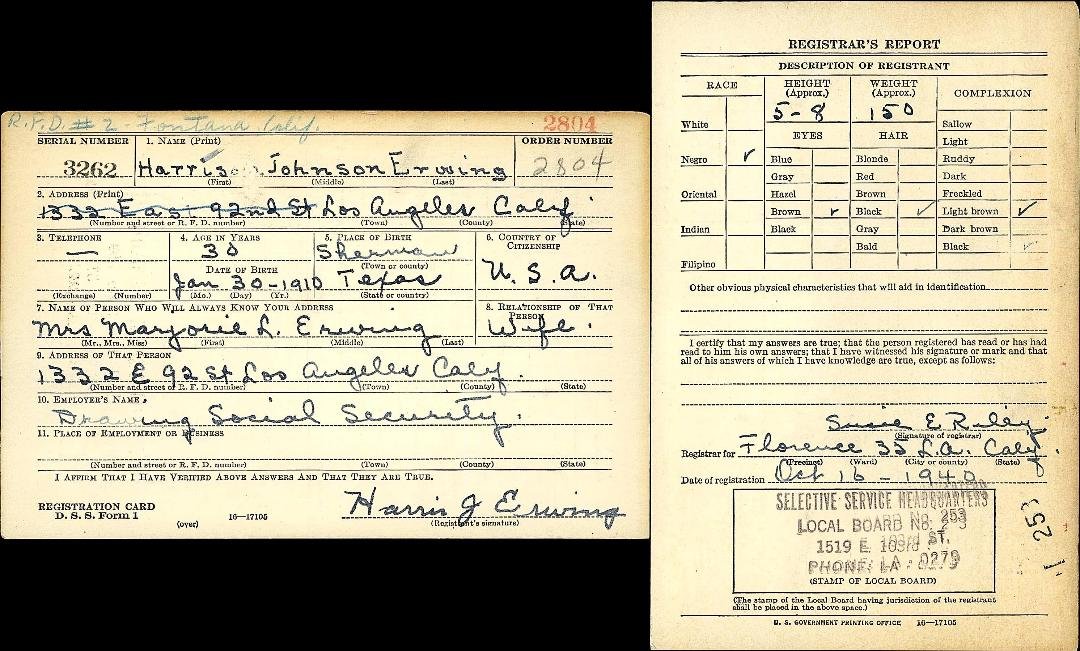 R.F.D. # 2 - Fontana Calif.
2804
SERIAL NUMBER 1. NAME (Print) ORDER NUMBER
3262 Harris Johnson Erwing 2804
(First) (Middle) (Last)
2. ADDRESS (Print)
1332 East 92nd St Los Angeles Calif
(Number and street or R. F. D. number) (Town) (County) (State)
3. TELEPHONE 4. AGE IN YEARS 5. PLACE OF BIRTH 6. COUNTRY OF CITIZENSHIP
— 30 Sherman
(Town or county)
DATE OF BIRTH
Jan 30-1910 Texas U.S.A.
(Exchange) (Number) (Mo.) (Day) (Yr.) (State or country)
7. NAME OF PERSON WHO WILL ALWAYS KNOW YOUR ADDRESS 8. RELATIONSHIP OF THAT PERSON
Mrs Marjorie L. Erwing Wife.
(Mr., Mrs., Miss) (First) (Middle) (Last)
9. ADDRESS OF THAT PERSON
1332 E 92 St Los Angeles Calif.
(Number and street or R. F. D. number) (Town) (County) (State)
10. EMPLOYER'S NAME
Drawing Social Security.
11. PLACE OF EMPLOYMENT OR BUSINESS
(Number and street or R. F. D. number) (Town) (County) (State)
I AFFIRM THAT I HAVE VERIFIED ABOVE ANSWERS AND THAT THEY ARE TRUE.
REGISTRATION CARD
D. S. S. Form 1 (over) 16—17105
Harris J Erwing
(Registrant's signature)
REGISTRAR'S REPORT
DESCRIPTION OF REGISTRANT
RACE HEIGHT (Approx.) WEIGHT (Approx.) COMPLEXION
5-8 150
White EYES HAIR Sallow
Light
Negro ✓ Blue Blonde Ruddy
Gray Red Dark
Oriental Hazel Brown Freckled
Brown ✓ Black ✓ Light brown ✓
Indian Black Gray Dark brown
Bald Black ✓
Filipino
Other obvious physical characteristics that will aid in identification
I certify that my answers are true; that the person registered has read or has had
read to him his own answers; that I have witnessed his signature or mark and that
all of his answers of which I have knowledge are true, except as follows:
Susie E Riley
(Signature of registrar)
Registrar for Florence 35 L.A. Calif.
(Precinct) (Ward) (City or county) (State)
Date of registration Oct 16 - 1940
SELECTIVE SERVICE HEADQUARTERS
LOCAL BOARD No. 253
1519 E. 103rd ST.
PHONE: LA - 0279
(STAMP OF LOCAL BOARD)
253
(The stamp of the Local Board having jurisdiction of the registrant
shall be placed in the above space.)
U. S. GOVERNMENT PRINTING OFFICE 16—17105